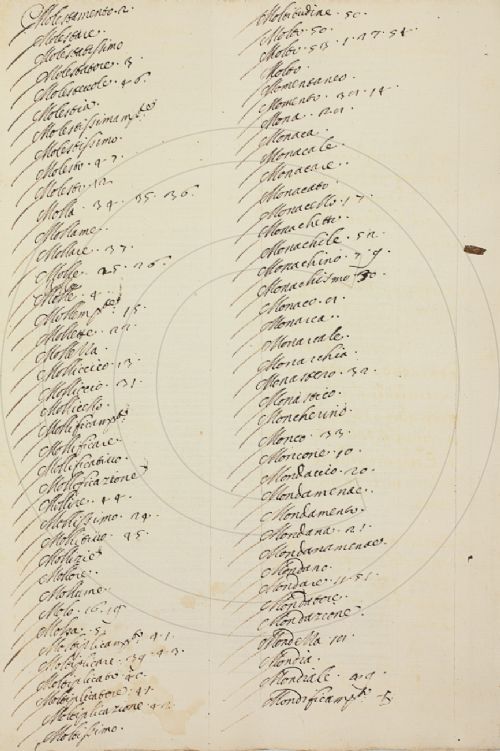 Molestamento. 2.
Molestare.
Molestatissimo
Molestatore. 3.
Molestevole. 46.
Molestia.
Molestissimam.te
Molestissimo.
Molesto. 4. 7.
Molesto. 12.
Molla. 34. 35. 36.
Mollame.
Mollare. 37.
Molle. 25. 26.
Molle. 4.
Mollem.te. 15.
Mollette. 22.
Mollezza.
Molliccico. 13.
Molliccio. 31.
Mollicello.
Mollificam.to
Mollificare.
Mollificativo.
Mollificazione
Mollire. 44.
Mollissimo. 24.
Mollitivo. 45.
Mollizie
Mollore.
Mollume.
Molo. 16. 19.
Molsa. 5.
Moltiplicam.to 41.
Moltiplicare. 39. 43.
Moltiplicato. 40.
Moltiplicatore. 41.
Moltiplicazione. 42.
Moltissimo.
Moltitudine. 50.
Molto. 50.
Molto. 53. 1. 47. 54.
Molto.
Momentaneo.
Momento. 301. 14.
Mona. 201.
Monaca.
Monacale.
Monacare.
Monacato
Monacello. 17.
Monachetto.
Monachile. 52.
Monachino. 7. 9.
Monachismo. 50.
Monaco. 01.
Monarca.
Monarcale.
Monarchia.
Monastero. 32.
Monastico.
Moncherino.
Monco. 33.
Moncone. 10.
Mondaccio. 20.
Mondamente.
Mondamento.
Mondana. 21.
Mondanamente.
Mondano.
Mondare. 11. 51.
Mondatore.
Mondazione.
Mondella 101.
Mondia.
Mondiale. 49.
Mondificam.to